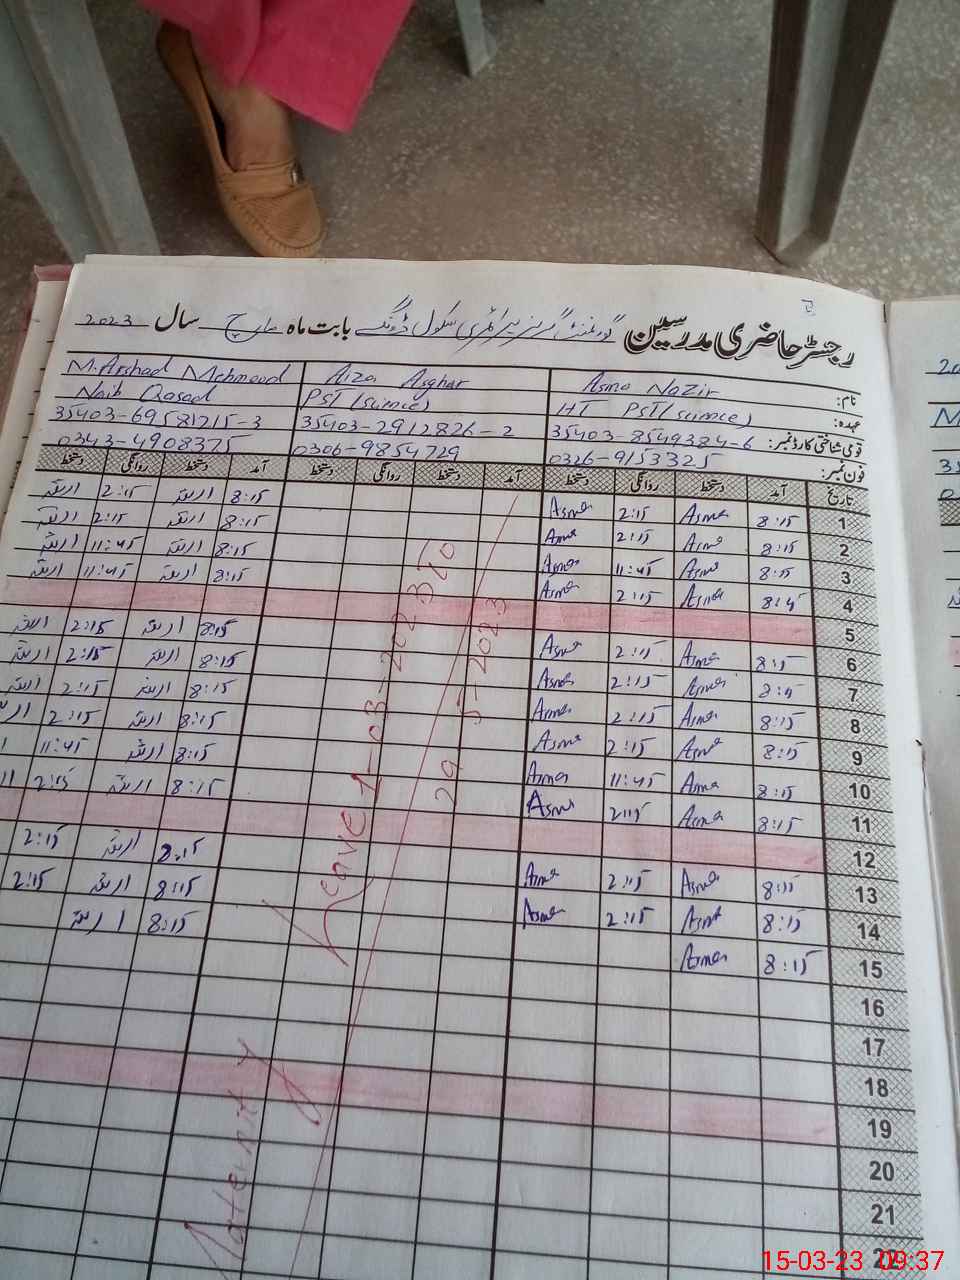 رجسٹر حاضری مدرسین گورنمنٹ گرلز پرائمری سکول ڈونگے بابت ماہ مارچ سال 2023
نام: Asma Nazir Aiza Asghar M. Arshad Mehmood
عہدہ: HT PST (science) PST (science) Naib Qasad
قومی شناختی کارڈ نمبر: 35403-8549384-6 35403-2912826-2 35403-69581215-3
فون نمبر: 0326-9153325 0306-9854729 0343-4908375
تاریخ آمد دستخط روانگی دستخط آمد دستخط روانگی دستخط آمد دستخط روانگی دستخط
1 8:15 Asma 2:15 Asma 8:15 2:15
2 8:15 Asma 2:15 Asma 8:15 2:15
3 8:15 Asma 11:45 Asma 8:15 11:45
4 Asma 2:15 Asma 8:15 11:45
5
6 8:15 Asma 2:15 Asma 8:15 2:15
7 Asma 2:15 Asma 8:15 2:15
8 8:15 Asma 2:15 Asma 8:15 2:15
9 8:15 Asma 2:15 Asma 8:15 2:15
10 8:15 Asma 11:45 Asma 8:15 11:45
11 8:15 Asma 2:15 Asma 8:15 2:15
12
13 8:15 Asma 2:15 Asma 8:15 2:15
14 8:15 Asma 2:15 Asma 8:15 2:15
15 8:15 Asma 8:15
16
17
18
19
20
21
22
Maternity Leave 1-03-2023 To
29-5-2023
15-03-23 09:37